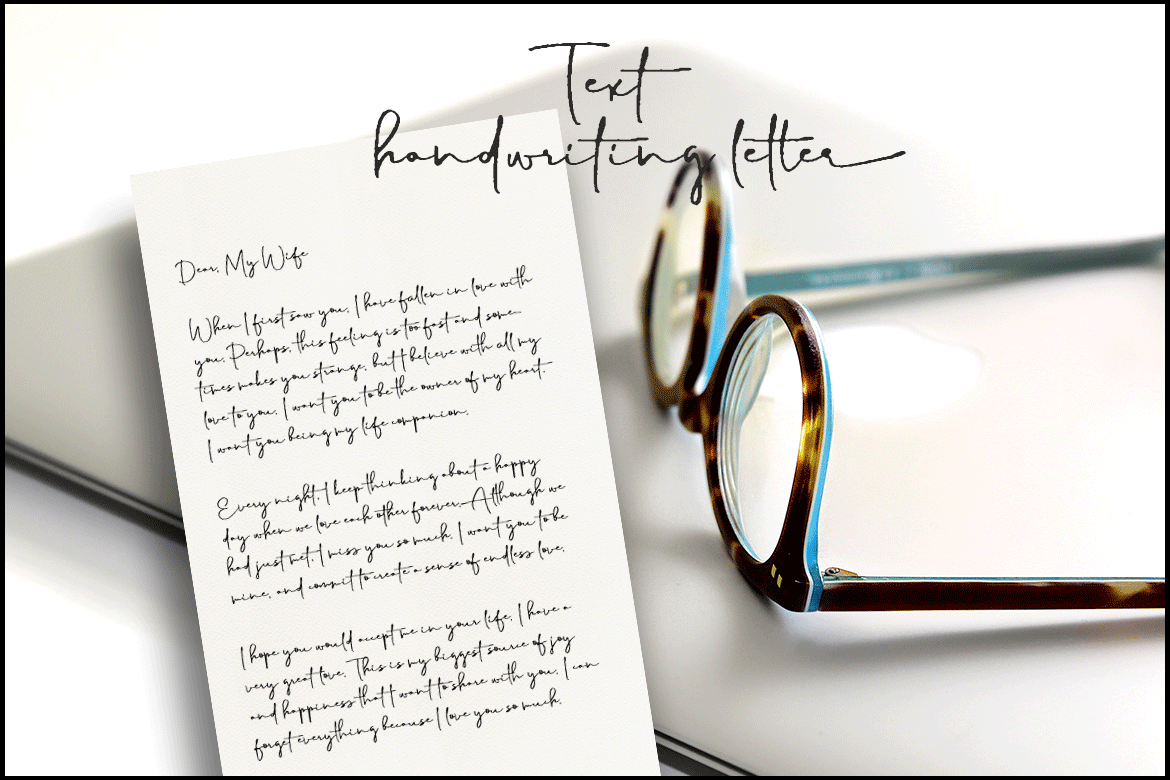 Text
handwriting letter
Dear, My Wife
When I first saw you, I have fallen in love with
you. Perhaps, this feeling is too fast and some
times makes you strange, but I believe with all my
love to you, I want you to be the owner of my heart.
I want you being my life companion.
Every night, I keep thinking about a happy
day when we love each other forever. Although we
had just met, I miss you so much. I want you to be
mine, and commit to create a sense of endless love.
I hope you would accept me in your life, I have a
very great love. This is my biggest source of joy
and happiness that I want to share with you. I can
forget everything because I love you so much.